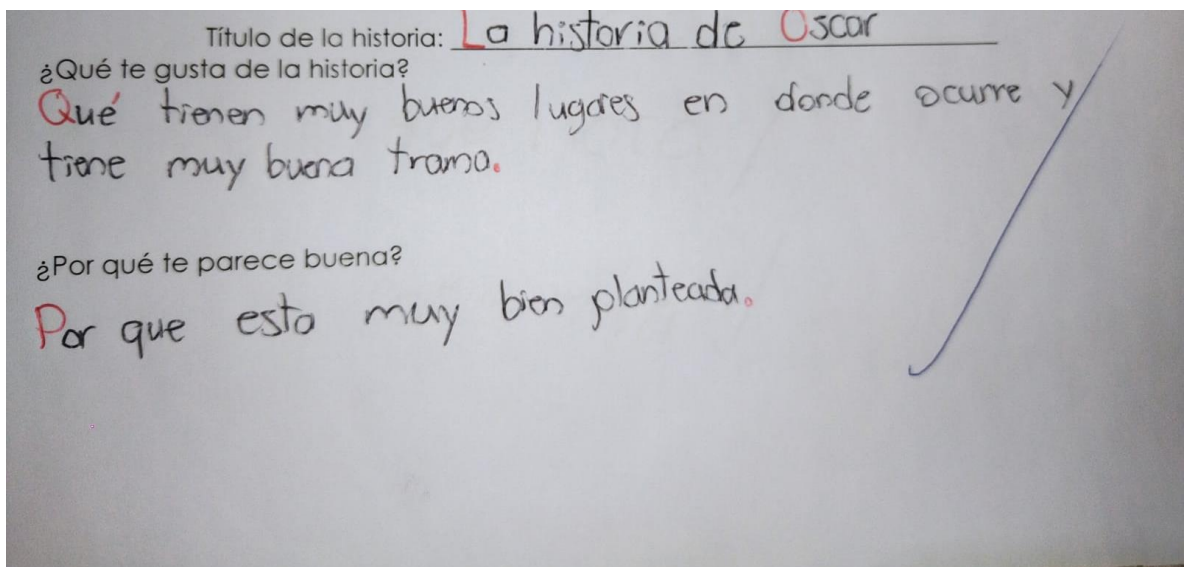 Título de la historia: La historia de Oscar
¿Qué te gusta de la historia?
Qué tienen muy buenos lugares en donde ocurre y
tiene muy buena trama.
¿Por qué te parece buena?
Por que esta muy bien planteada.